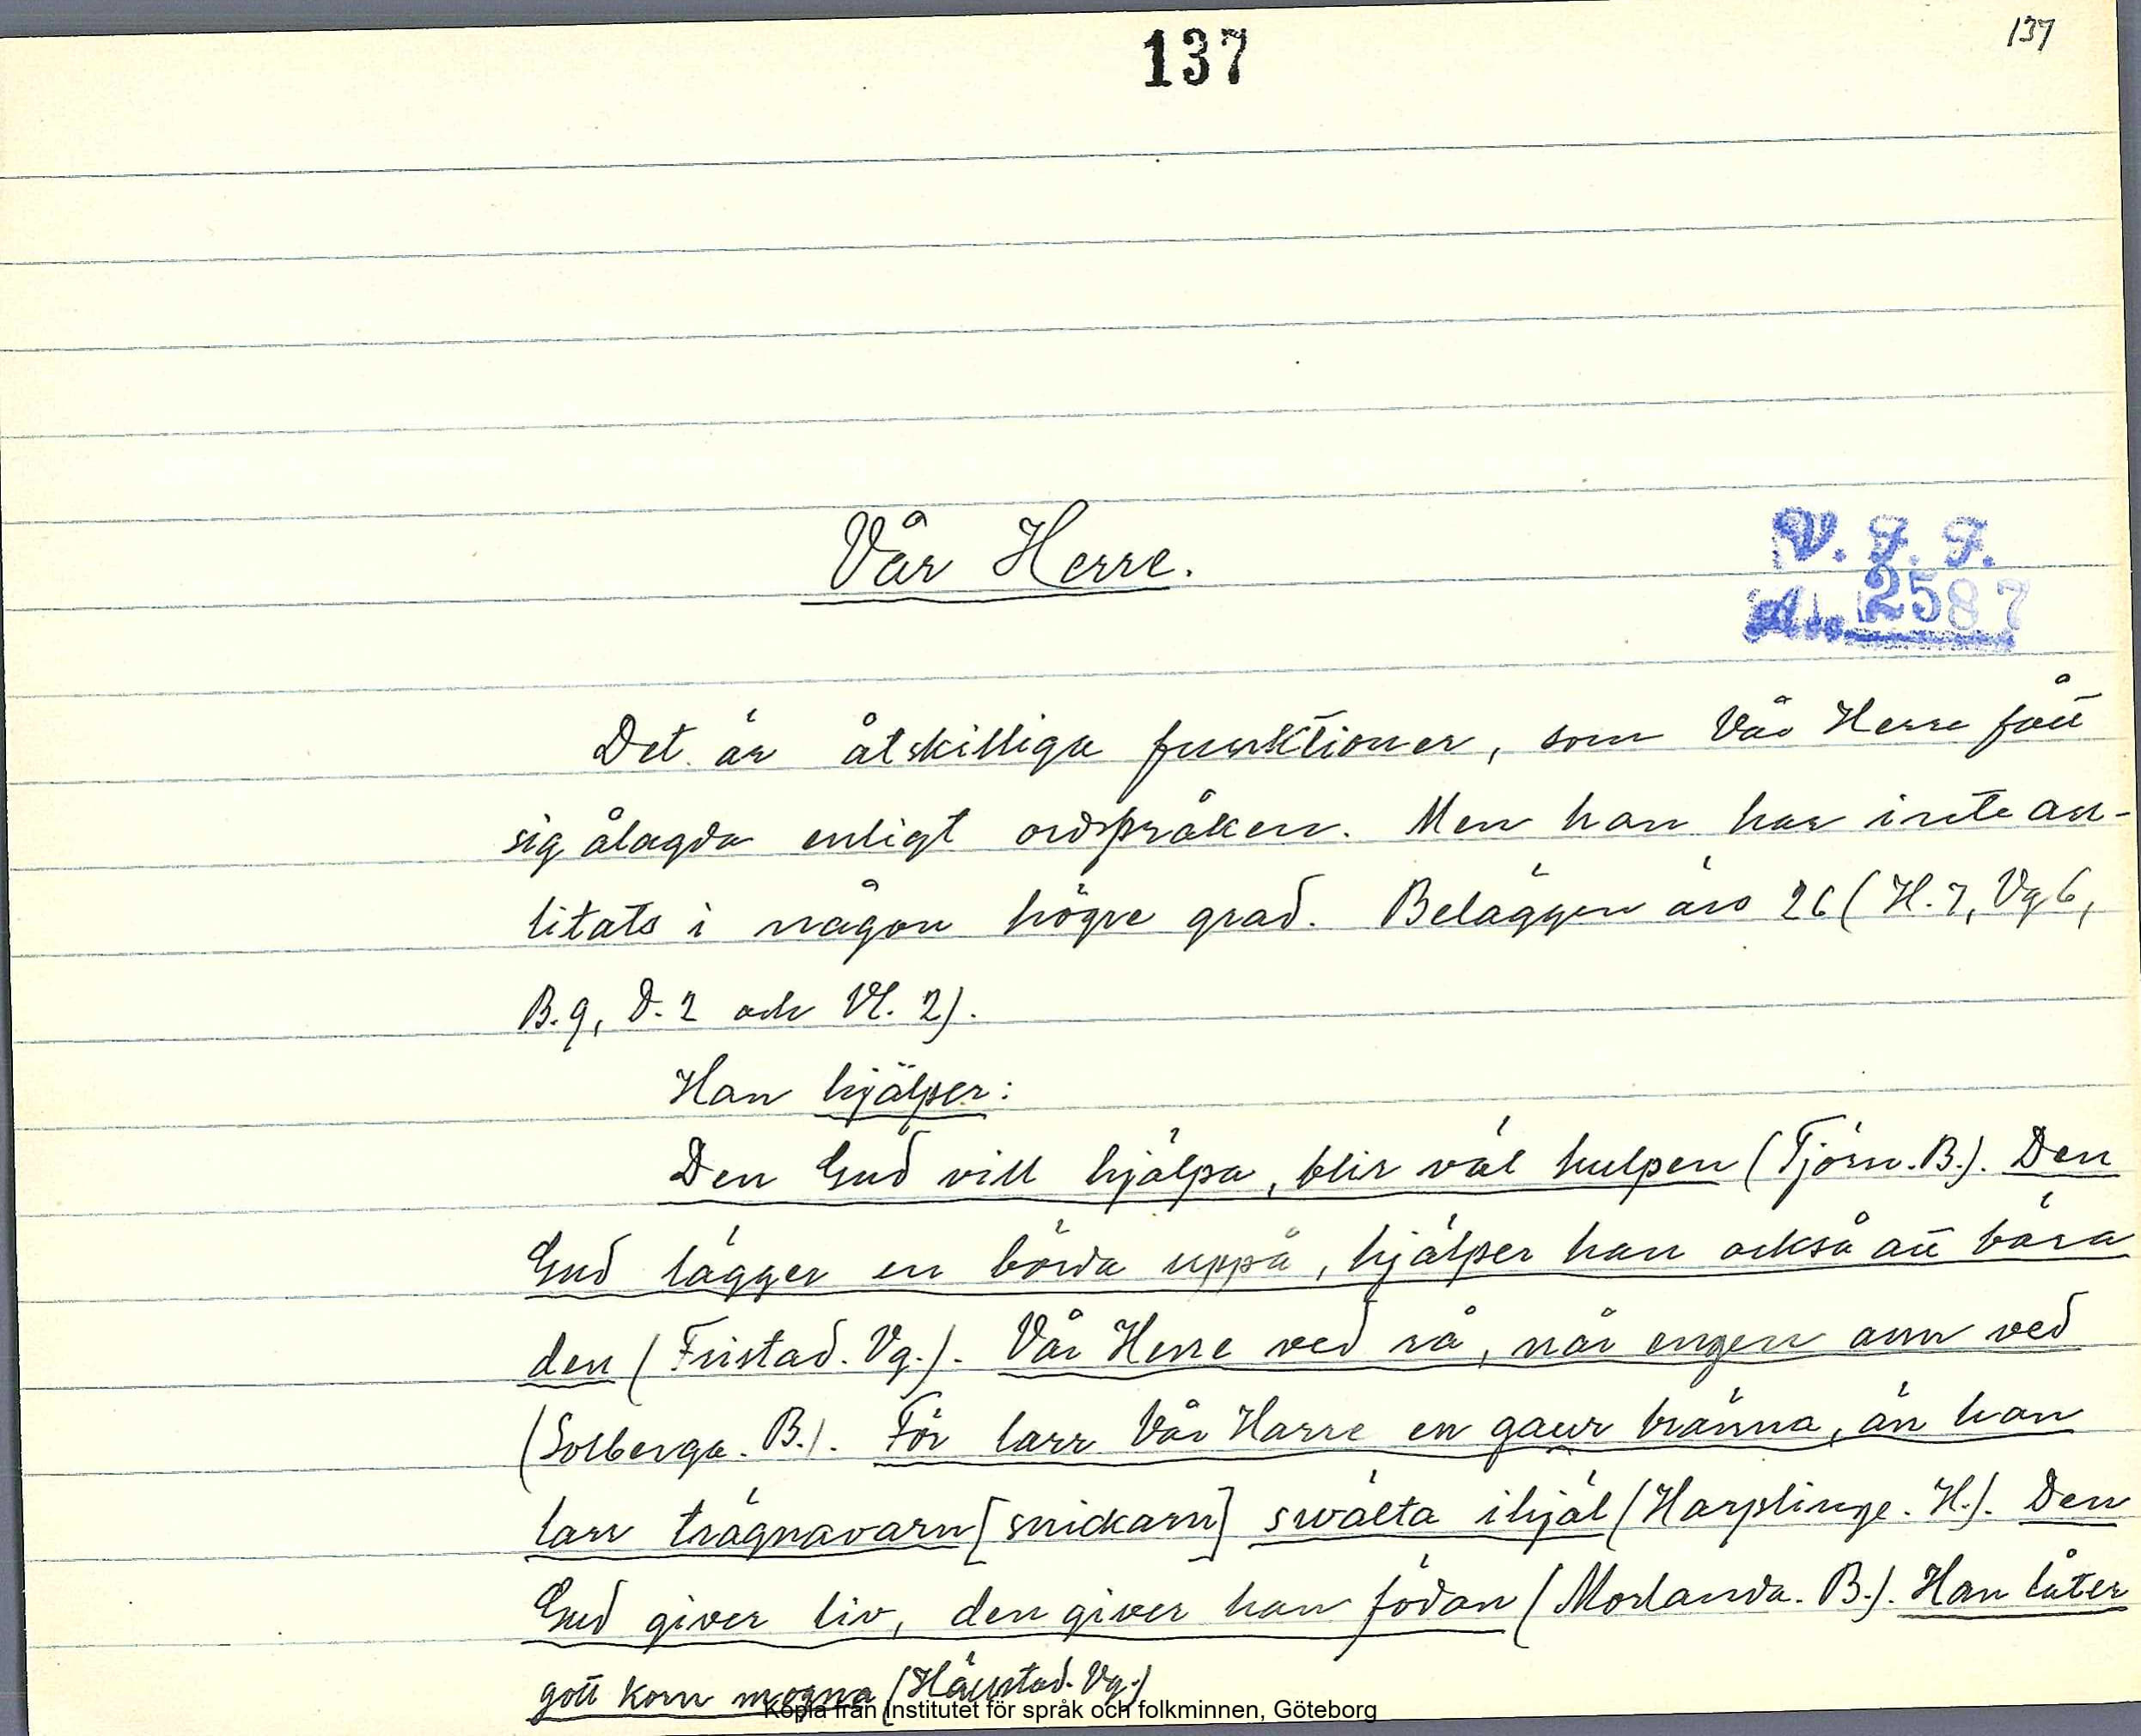 137
137
Vår Herre.
V. F. F.
Acc. 2587
Det är åtskilliga funktioner, som Vår Herre fått
sig ålagda enligt ordspråken. Men han har inte an-
litats i någon högre grad. Beläggen äro 26 (H. 7, Vg 6,
B. 9, D. 2 och Vl. 2).
Han hjälper:
Den Gud vill hjälpa, blir väl hulpen (Tjörn. B.). Den
Gud lägger en börda uppå, hjälper han också att bära
den (Fristad. Vg.). Vår Herre ved rå, når engen ann ved
(Solberga. B.). För larr Vår Harre en gaur bränna, än han
larr trägnavarn [snickarn] swälta ihjäl (Harplinge. H.). Den
Gud giver liv, den giver han födan (Morlanda. B.). Han låter
gott korn mogna Vg.)
Kopia från Institutet för språk och folkminnen, Göteborg